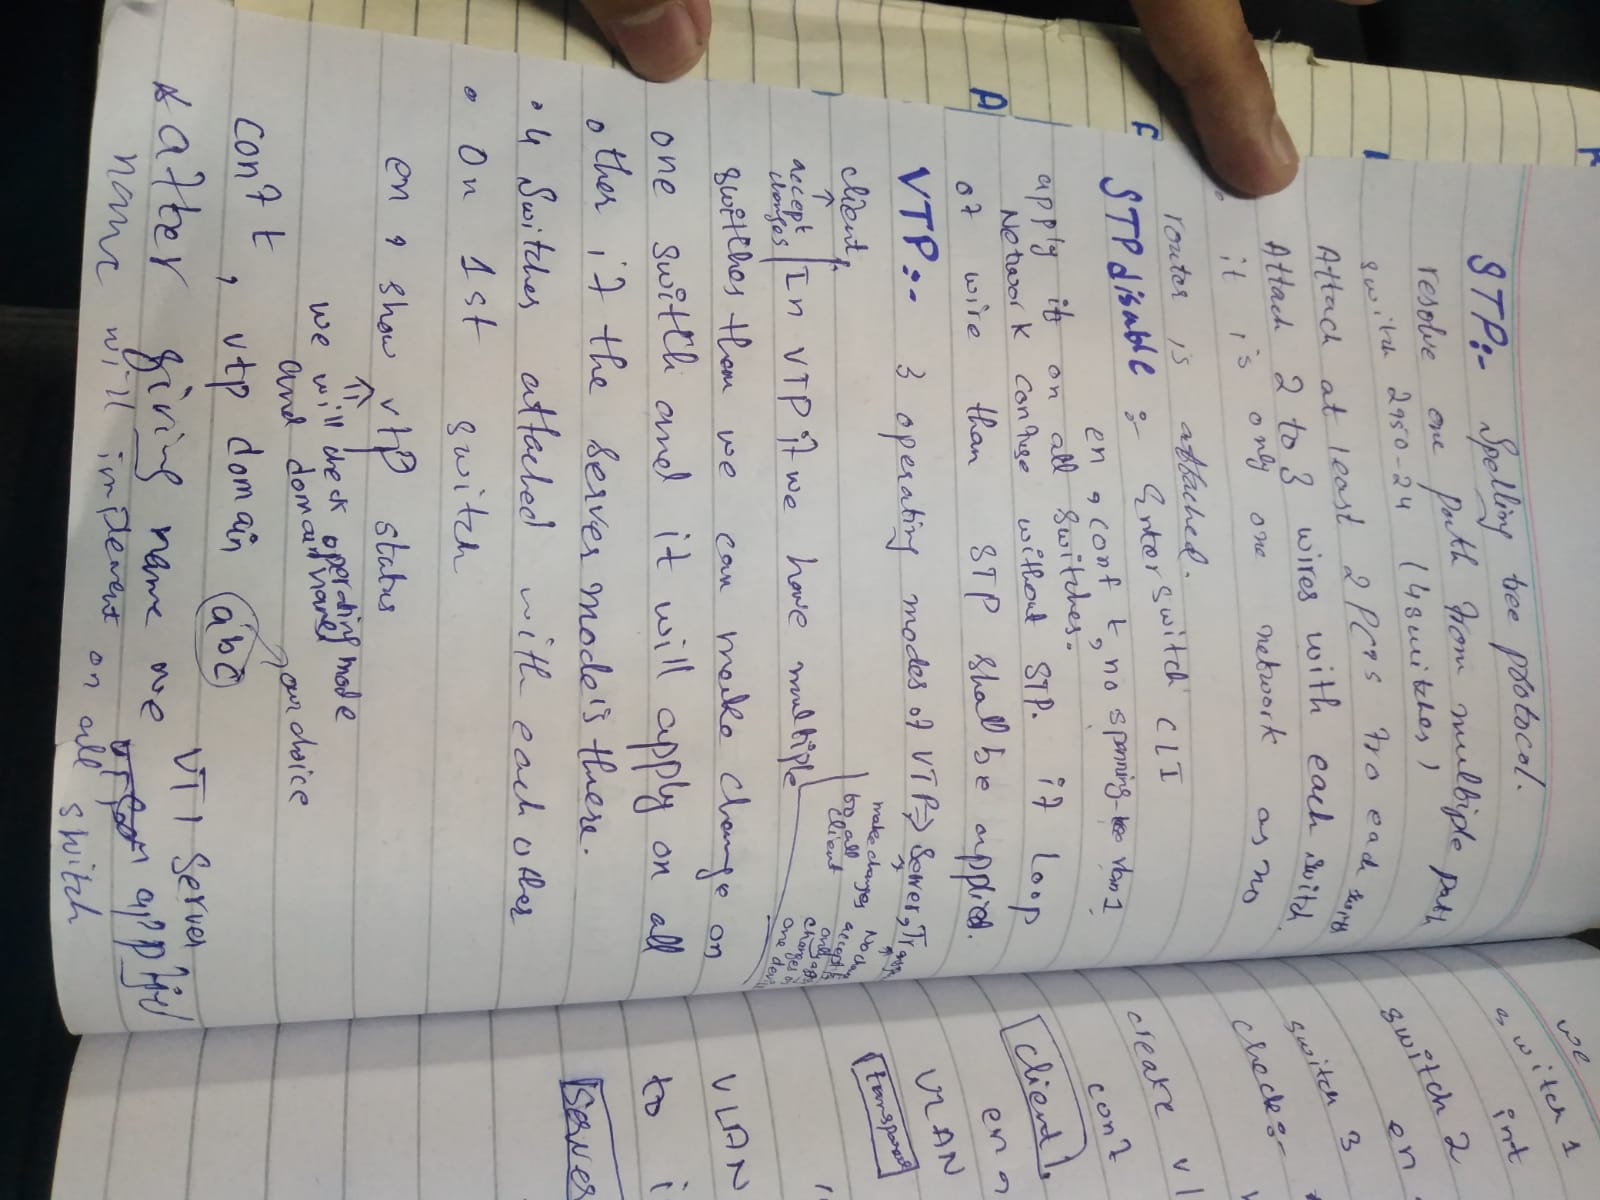 STP:- Spelling tree protocol.
resolve one path from multiple path
switch 2950-24 (4 switches)
Attach at least 2 PC's fro each swith
Attach 2 to 3 wires with each switch.
it is only one network as no
router is attached.
STP disable :- Enter switch CLI
en, conf t, no spanning-tree vlan 1
apply it on all switches.
Network confuse without STP. if Loop
of wire than STP shall be applied.
VTP:- 3 operating modes of VTP => Server,
make changes to all client
No
accept
only
changes
one
client
accept changes
In VTP if we have multiple
switches then we can make change on
one switch and it will apply on all
other if the server mode is there.
• 4 Switches attached with each other
• On 1st switch
en, show vtp status
we will check operating mode
and domain name
our choice
conf t, vtp domain abc
after giving name we Server
name will implement on all switch
we
switch 1
int
switch 2
en
switch 3
check:-
create
conf
client
en
VLAN
transparent
VLAN
to
server